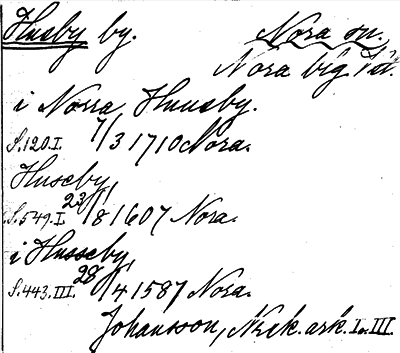 Husby by. Nora sn.
Nora bfg. Väst.
i Norra Huusby.
S. 120. I. 7/3 1710 Nora.
Huseby
S. 549. I. 23/8 1607 Nora.
i Husseby
S. 443. III. 28/4 1587 Nora.
Johansson, Nkrk. ark. I o. III.